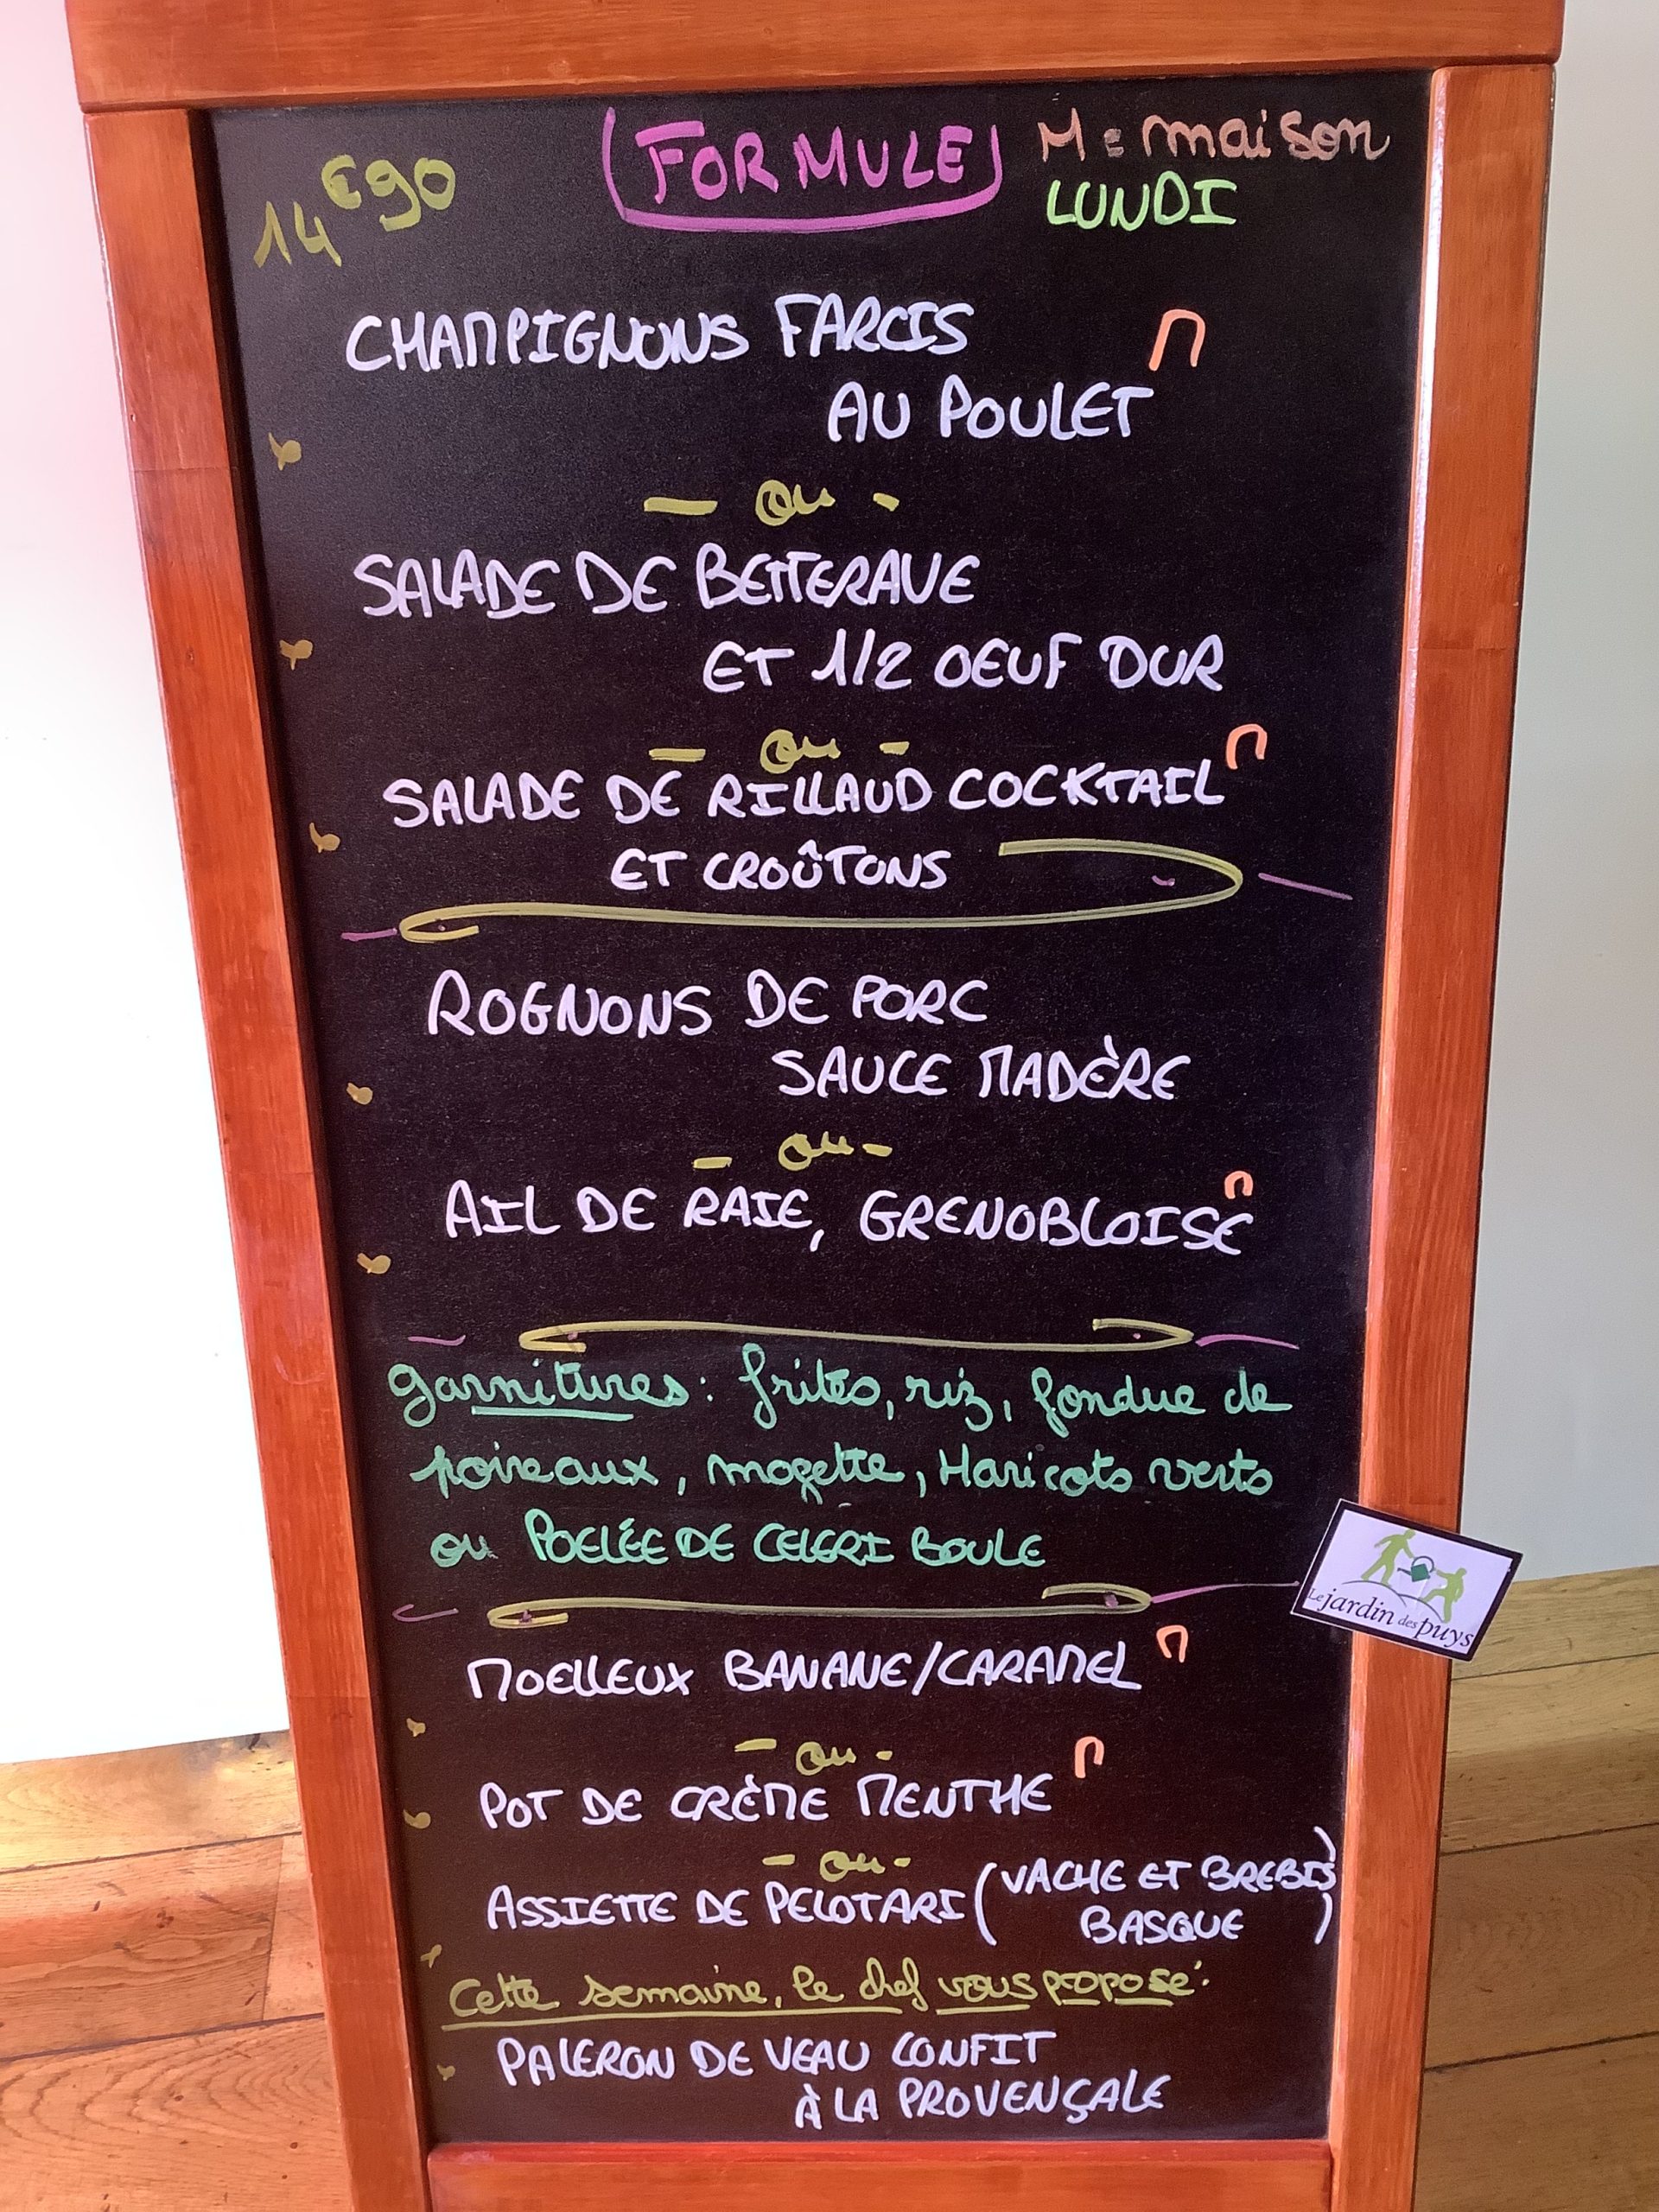 14€90
FORMULE
M = maison
LUNDI
CHAMPIGNONS FARCIS M
AU POULET
- ou -
SALADE DE BETTERAVE
ET 1/2 OEUF DUR
- ou -
SALADE DE RILLAUD COCKTAIL M
ET CROÛTONS
ROGNONS DE PORC
SAUCE MADÈRE
- ou -
AIL DE RAIE, GRENOBLOISE M
garnitures : frites, riz, fondue de
poireaux, mogette, Haricots verts
ou POELÉE DE CELERI BOULE
MOELLEUX BANANE/CARAMEL M
- ou -
POT DE CRÈME MENTHE M
- ou -
ASSIETTE DE PELOTARI (VACHE ET BREBIS
BASQUE)
Cette semaine, le chef vous propose :
PALERON DE VEAU CONFIT
À LA PROVENÇALE
Le jardin des puys